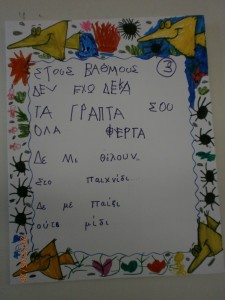 ΣΤΟΥΣ ΒΑΘΜΟΥΣ
3
ΔΕΝ ΕΧΩ ΔΕΚΑ
ΤΑ ΓΡΑΠΤΑ ΣΟΥ
ΟΛΑ ΦΕΡΤΑ
Δε Μι θέλουν
Στο παιχνίδι...
Δε με παίζι
ούτε μίδι